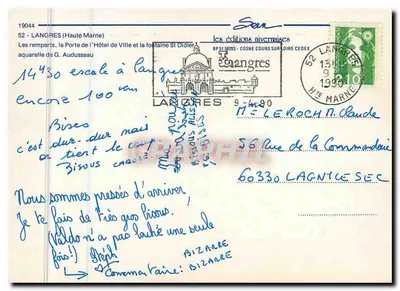 19044
52 - LANGRES (Haute Marne)
Les remparts, la Porte de l'Hôtel de Ville et la fontaine St Didier
aquarelle de G. Audusseau
les éditions nivernaises
COSNE COURS SUR LOIRE CEDEX
Langres
LANGRES 9-4-90
52 LANGRES
13H
9-4
1990
HTE MARNE
2,10
14h30 escale à Langres
encore 100 km
Bises
c'est dur-dur mais
on tient le coup
Bisous
Nous sommes pressés d'arriver
Je te fais de très gros bisous.
Valdo n'a pas lâché une seule
fois!) Steph
Commentaire: BIZARRE
BIZARRE
Me LEROCH Claude
56 Rue de la Commanderie
60330 LAGNY LE SEC